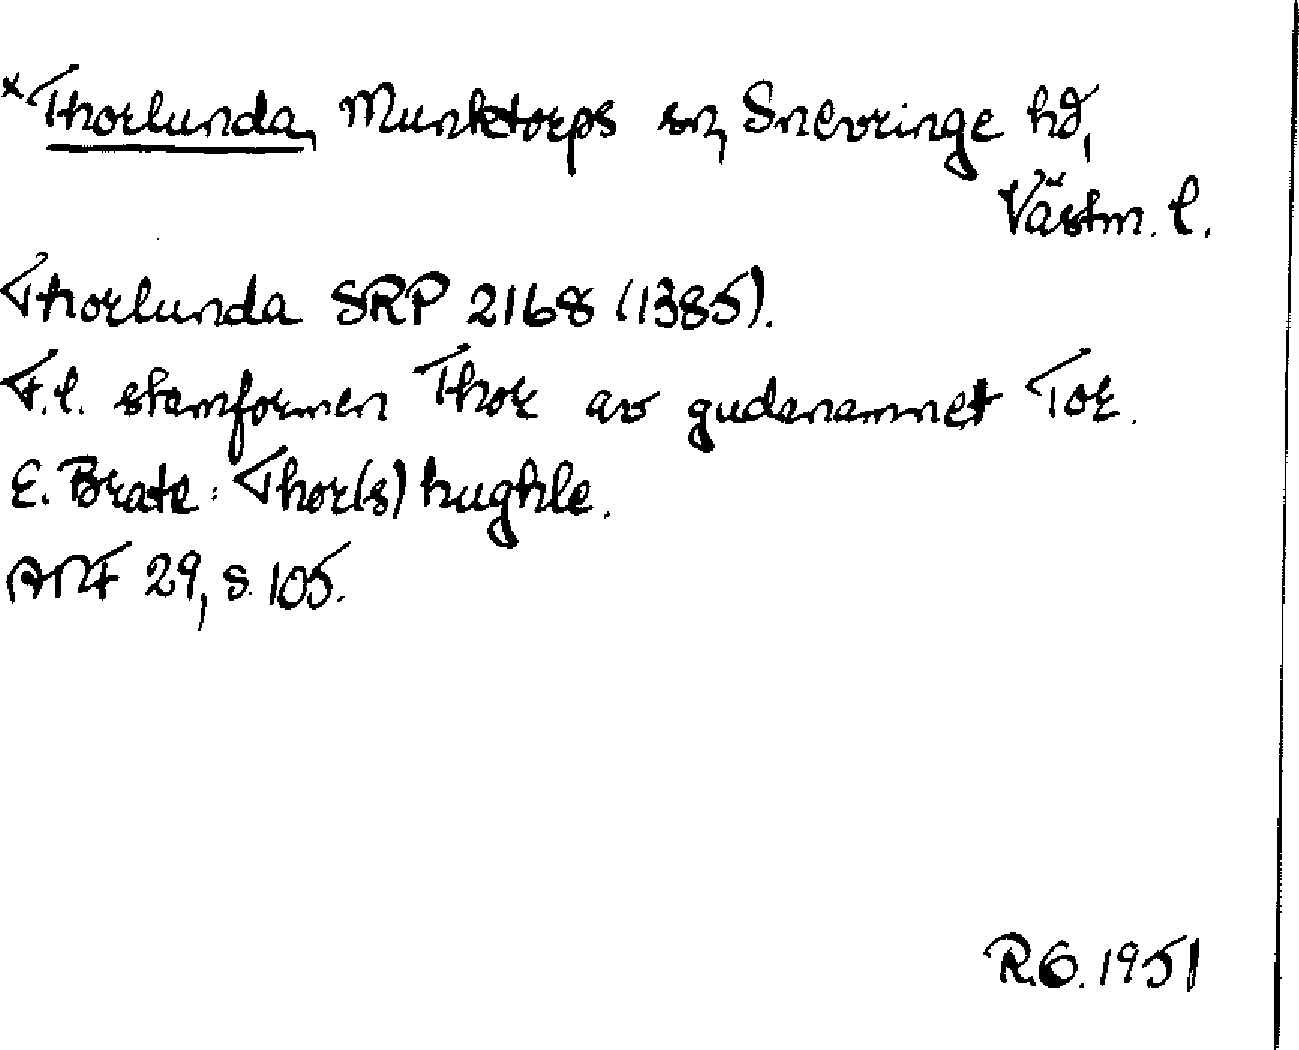 *Thorlunda, Munktorps sn, Snevringe hd,
Västm. l.
Thorlunda SRP 2168 (1385).
F.l. stamformen Thor av gudanamnet Tor.
E. Brate: Thor(s)hughle.
ANF 29, s. 105.
R.G. 1951